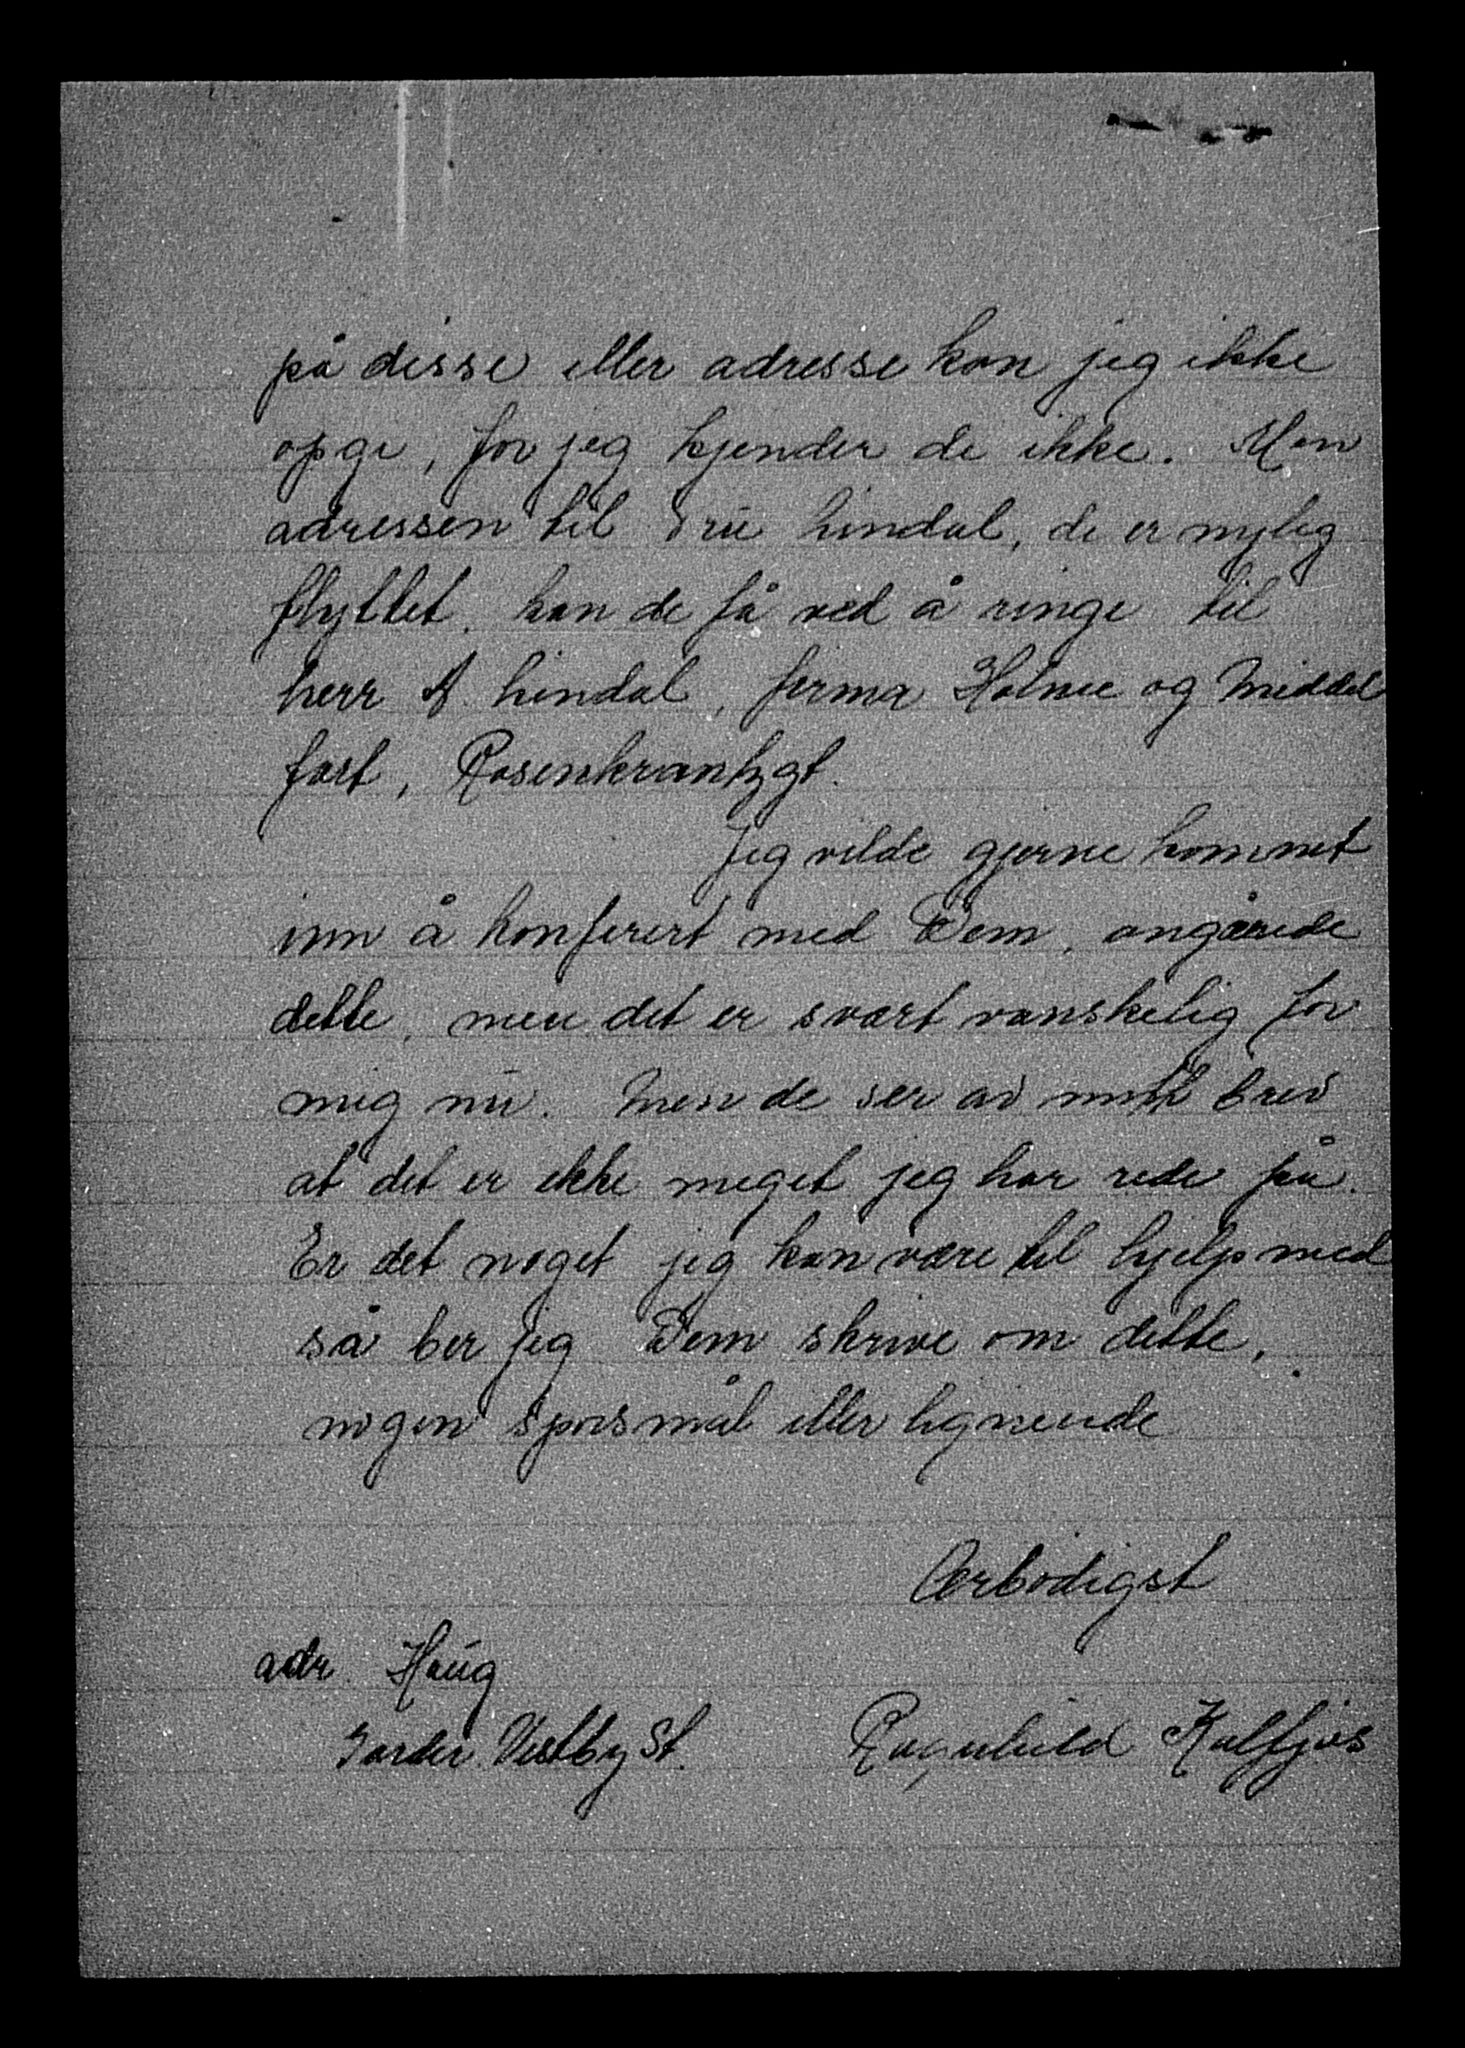 på disse eller adresse kan jeg ikke
opgi, for jeg kjender de ikke. Men
adressen til Fru Lindal, de er nylig
flyttet, kan de få ved å ringe til
herr A. Lindal, firma Holme og Middel
fart, Rosenkrantzgt.
Jeg vilde gjerne kommet
inn å konferert med Dem, angårede
dette, men det er svært vanskelig for
mig nu. Men de ser av mitt brev
at det er ikke meget jeg har rede på.
Er det noget jeg kan være til hjelp med
så ber jeg Dem skrive om dette,
nogen spørsmål eller lignende
Ærbødigst
adr. Haug
Garder. Vestby St.
Ragnhild